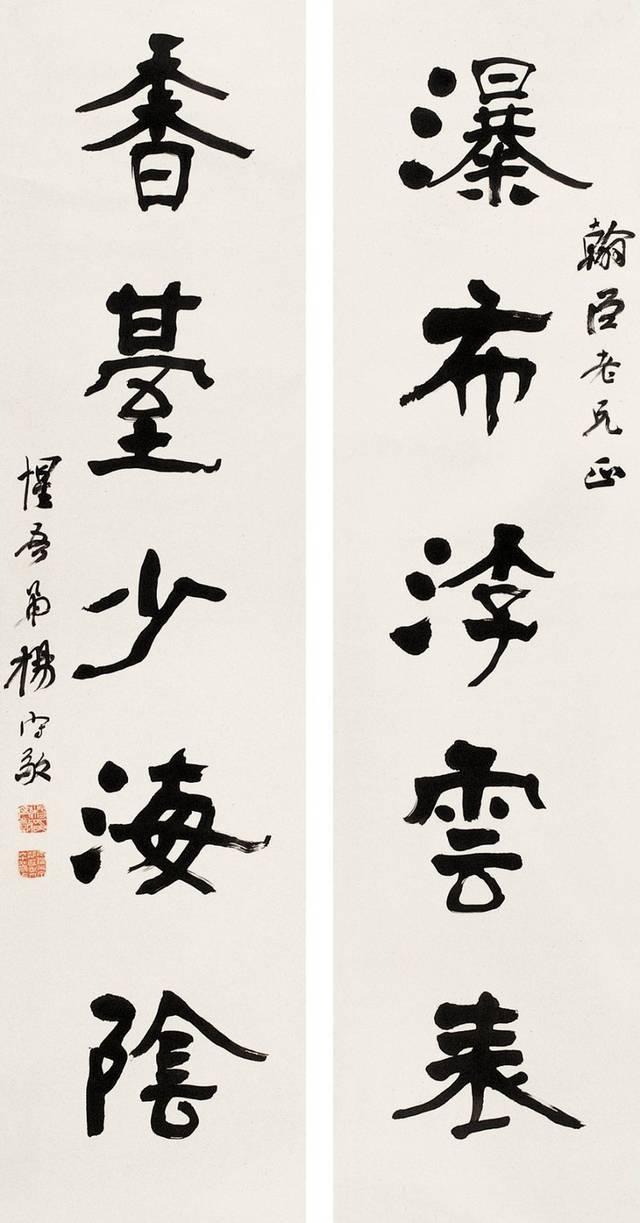 翰臣老兄正
瀑布浮雲表
香臺少海陰
惺吾弟楊守敬